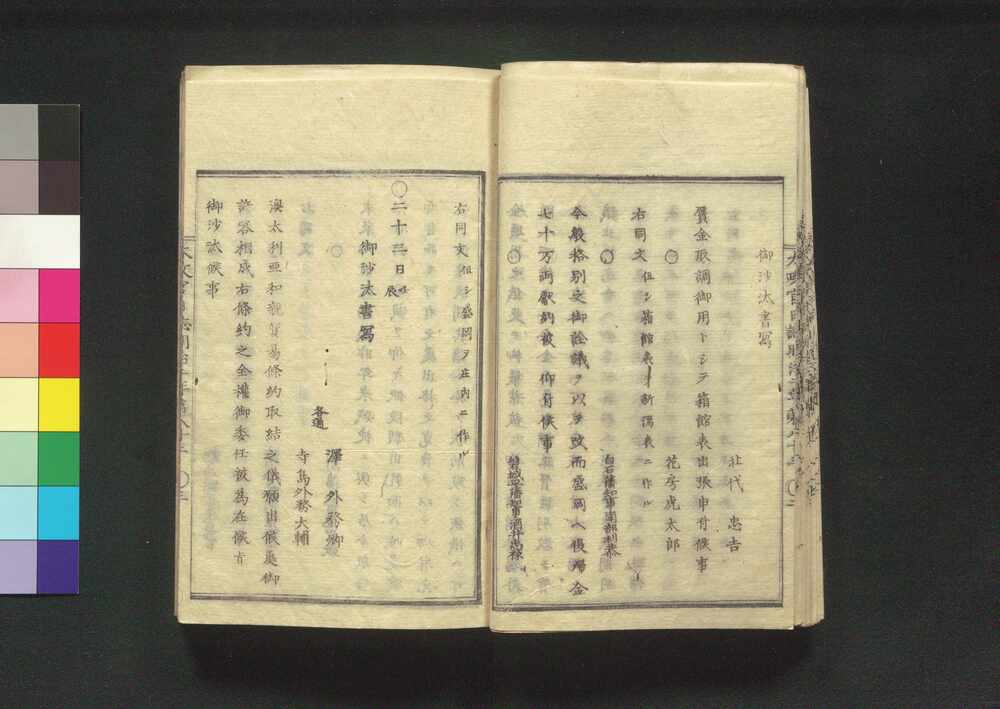 御沙汰書寫
北代忠吉
贋金取調御用トシテ箱館表出張申付候事
〇
花房虎太郎
右同文但シ箱館表ヲ新潟表ニ作ル
〇
白石藩知事南部利恭
今般格別之御詮議ヲ以テ改而盛岡ヘ復歸金
七十万両獻納被仰付候事
〇
酒井忠祿
右同文但シ盛岡ヲ庄内ニ作ル
〇二十二日
御沙汰書寫
〇
澤外務卿
各通
寺島外務大輔
澳太利亜和親貿易條約取結之儀願出候處御
許容相成右條約之全權御委任被為在候旨
御沙汰候事